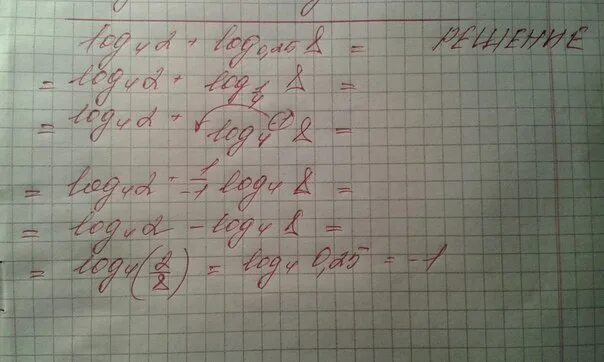 log₄2 + log₀,₂₅8 = РЕШЕНИЕ
= log₄2 + log_{1/4} 8 =
= log₄2 + log_{4^{(-1)}} 8 =
= log₄2 + \frac{1}{-1} log₄ 8 =
= log₄2 - log₄ 8 =
= log₄(\frac{2}{8}) = log₄ 0,25 = -1